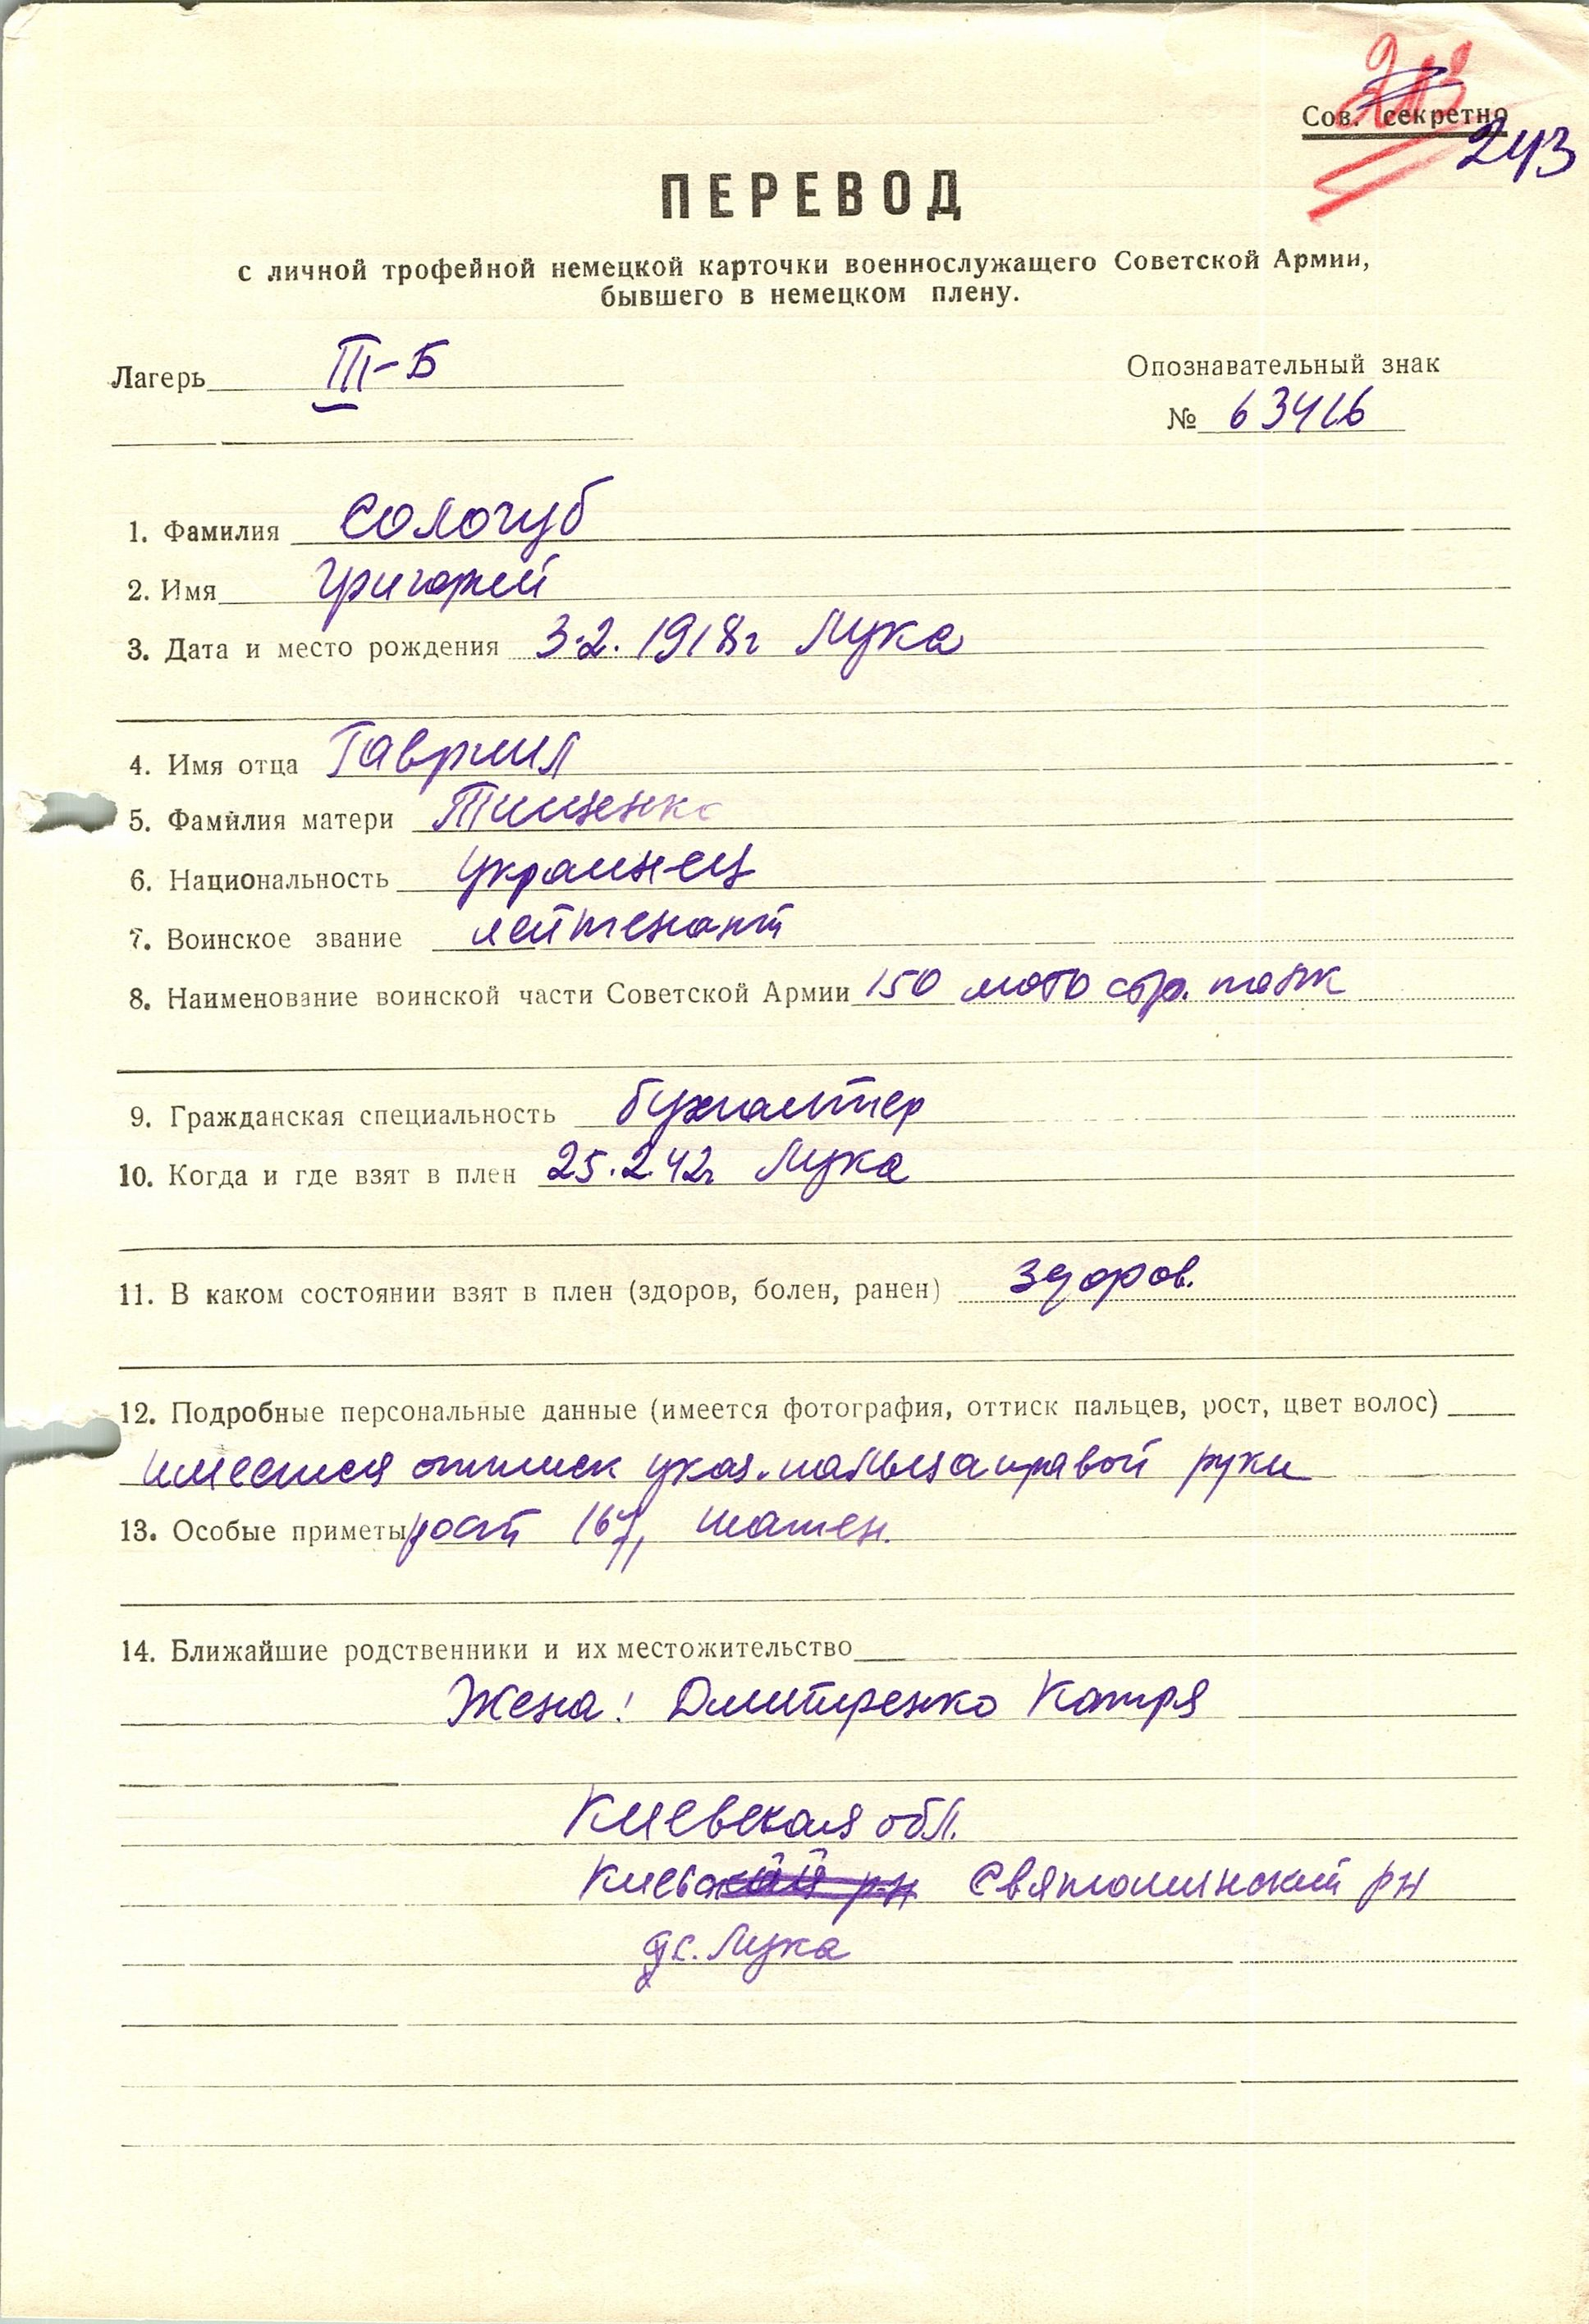 Сов. секретно
243
ПЕРЕВОД
с личной трофейной немецкой карточки военнослужащего Советской Армии,
бывшего в немецком плену.
Лагерь III-Б
Опознавательный знак
№ 63416
1. Фамилия Сологуб
2. Имя Григорий
3. Дата и место рождения 3.2.1918г Лука
4. Имя отца Гавриил
5. Фамилия матери Тищенко
6. Национальность украинец
7. Воинское звание лейтенант
8. Наименование воинской части Советской Армии 150 мото стр. полк
9. Гражданская специальность бухгалтер
10. Когда и где взят в плен 25.2.42г Лука
11. В каком состоянии взят в плен (здоров, болен, ранен) здоров.
12. Подробные персональные данные (имеется фотография, оттиск пальцев, рост, цвет волос)
имеется оттиск указ. пальца правой руки
13. Особые приметы рост 167, шатен.
14. Ближайшие родственники и их местожительство
Жена: Дмитренко Катря
Киевская обл.
Киевский р-н Святошинский рн
с. Лука